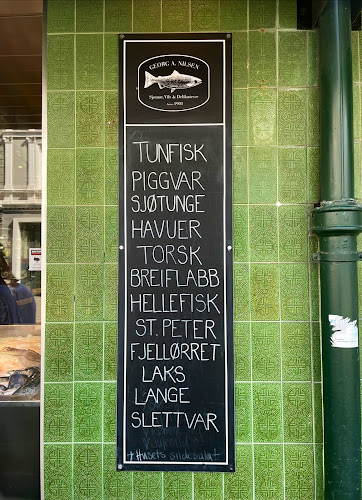 GEORG A. NILSEN
Sjømat, Vilt & Delikatesser
1909
TUNFISK
PIGGVAR
SJØTUNGE
HAVUER
TORSK
BREIFLABB
HELLEFISK
ST. PETER
FJELLØRRET
LAKS
LANGE
SLETTVAR
+ Husets sildesalat +